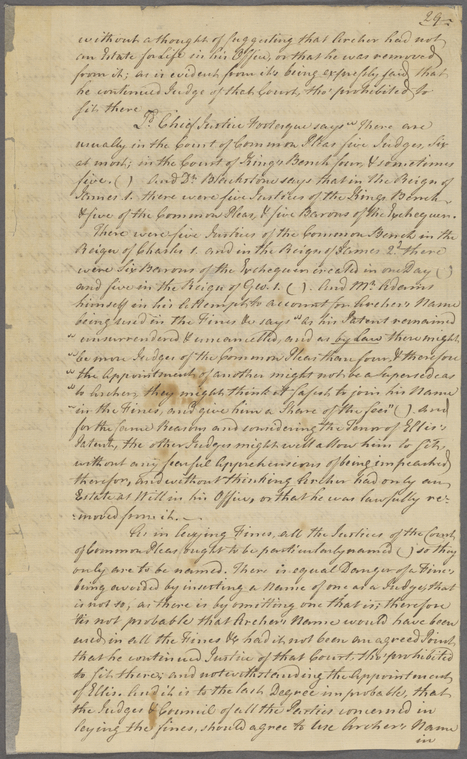 29
without a thought of suggesting that Archer had not
an Estate for Life in his Office, or that he was removed
from it; as is evident from it's being expressly said that
he continued Judge of that Court, tho' prohibited to
sit there
Ld. Chief Justice Fortesque says "There are
usually in the Court of Common Pleas five Judges, Six
at most; in the Court of King's Bench four, & sometimes
five. ( ) And Dr. Blackstone says that in the Reign of
James 1. there were five Justices of the Kings Bench
& five of the Common Pleas, & five Barons of the Exchequer.
There were five Justices of the Common Bench in the
Reign of Charles 1. and in the Reign of James 2d. there
were Six Barons of the Exchequer created in one Day ( )
and five in the Reign of Geo. 1. ( ). And Mr. Adams
himself in his Attempt to account for Archer's Name
being used in the Fines &c says "as his Patent remained
" unsurrendered & uncancelled, and as by Law there might
" be more Judges of the Common Pleas than four, & therefore
" the Appointment of another might not be a Supersedeas
" to Archer, they might think it safest to join his Name
" in the Fines, and give him a Share of the fees" ( ). And
for the same Reasons and considering the Tenor of Ellis's
Patent, the other Judges might well allow him to sit,
without any fearful Apprehensions of being impeached
therefor, and without thinking Archer had only an
Estate at Will in his Office, or that he was lawfully re-
moved from it.
As in levying Fines, all the Justices of the Court
of Common Pleas ought to be particularly named ( ) so they
only are to be named. There is equal Danger of a Fine's
being avoided by inserting a Name of one as a Judge, that
is not so, as there is by omitting one that is; therefore
tis not probable that Archer's Name would have been
used in all the Fines &c had it not been an agreed Point,
that he continued Justice of that Court tho' prohibited
to sit there; and notwithstanding the Appointment
of Ellis. And it is to the last Degree improbable, that
the Judges & Council of all the Parties concerned in
levying the fines, should agree to use Archer's Name
in